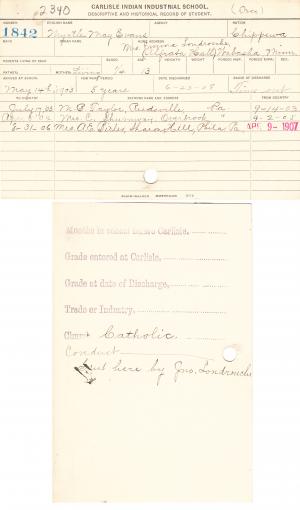 CARLISLE INDIAN INDUSTRIAL SCHOOL.
2340 DESCRIPTIVE AND HISTORICAL RECORD OF STUDENT. (Over)
NUMBER ENGLISH NAME AGENCY NATION
1842 Myrtle May Evans Chippewa
BAND INDIAN NAME HOME ADDRESS
Mrs. Emma
Wabasha Minn
PARENTS LIVING OR DEAD BLOOD AGE HEIGHT WEIGHT FORCED INSP. FORCED EXPR. SEX
FATHER MOTHER Living 1/4 13
ARRIVED AT SCHOOL FOR WHAT PERIOD DATE DISCHARGED CAUSE OF DISCHARGE
May 14th, 1903 5 years 6-23-08 Time out
TO COUNTRY PATRONS NAME AND ADDRESS FROM COUNTRY
July 7, 03 M. P. Taylor, Reedsville Pa 9-14-03
Mrs. C. Shumway, Overbrook " 9-2-05
8-31-06 Mrs A.E. Sharon Hill, Phila Pa APR 9-1907
Months in school before Carlisle.
Grade entered at Carlisle.
Grade at date of Discharge.
Trade or Industry.
Church Catholic.
Conduct
Sent here by Jno. Londrosche